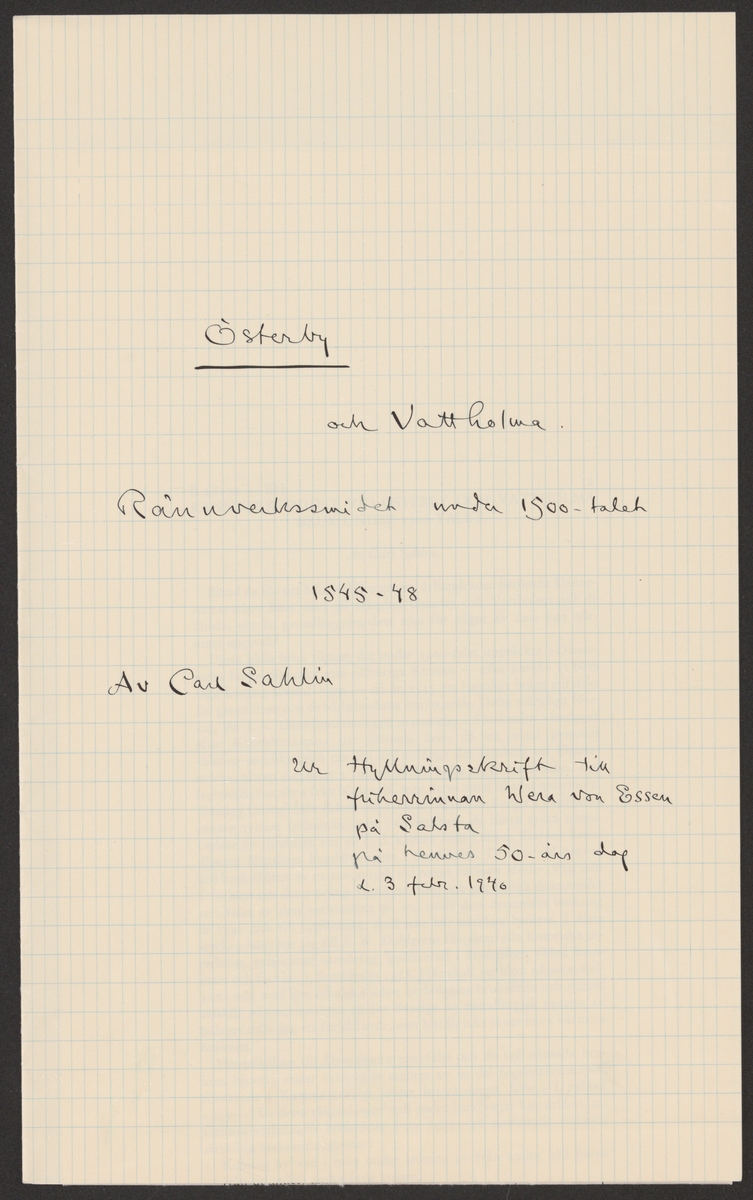 Österby
och Vattholma.
Rännverkssmidet under 1500-talet
1545-48
Av Carl Sahlin
Ur Hyllningsskrift till
friherrinnan Wera von Essen
på Salsta
på hennes 50-års dag
d. 3 febr. 1940